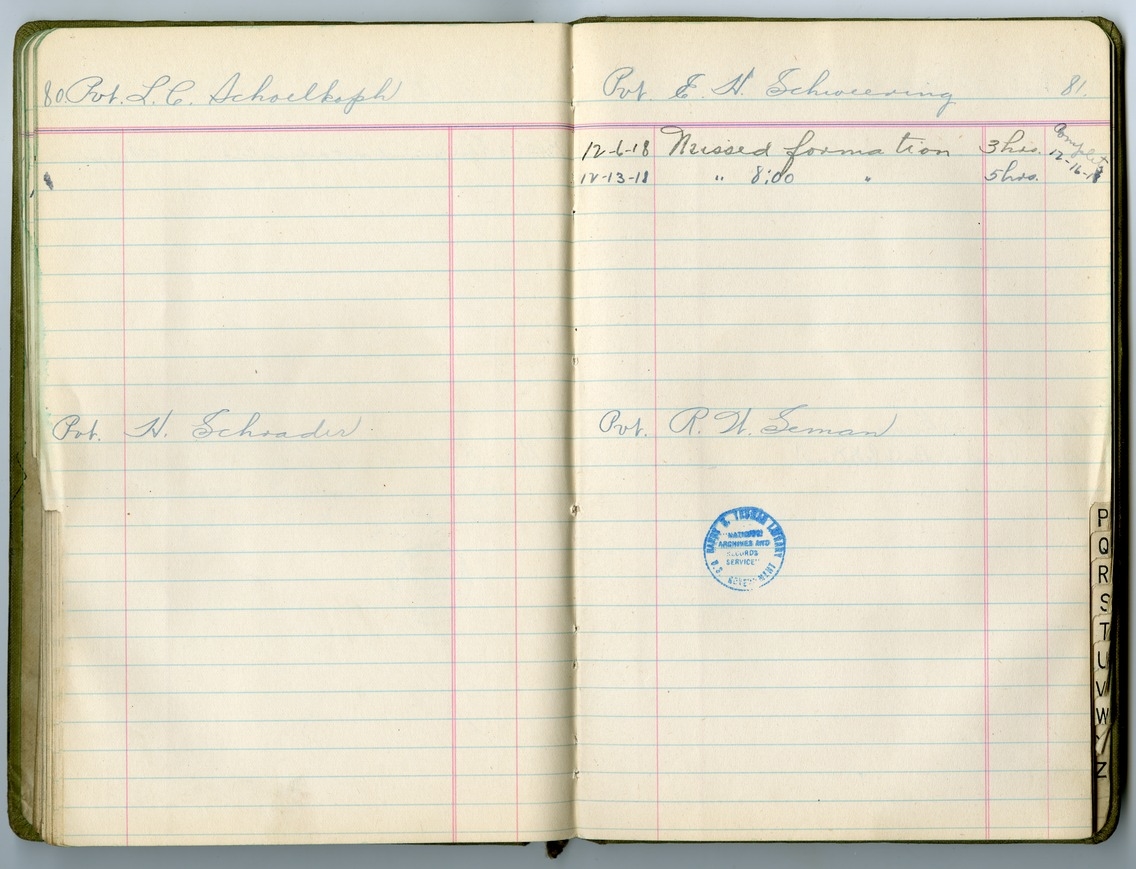 80 Pvt. L. C. Schoelkoph
Pvt. H. Schrader
Pvt. E. H. Schweering 81.
12-6-18 Missed formation 3 hrs. Complete
12-13-18 " 8:00 " 5 hrs. 12-16-18
Pvt. R. W. Seman
HARRY S. TRUMAN LIBRARY
"NATIONAL
ARCHIVES AND
RECORDS
SERVICE"
U.S. GOVERNMENT
P
Q
R
S
T
U
V
W
Z